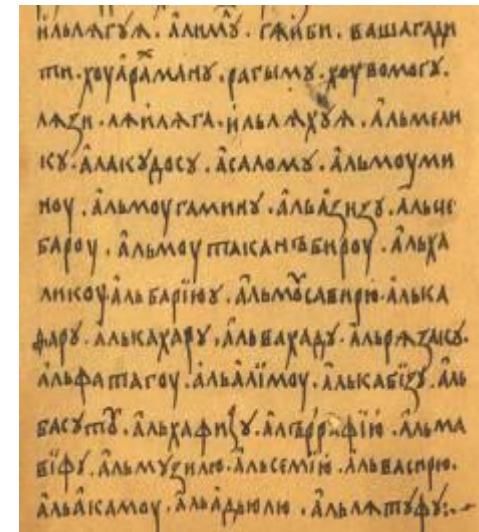 и҆льлѧгꙋѧ . а҆лимꙋ̑ . гѧ́иби . вашагади
ти . хоуа҆ра̑манꙋ . рагымꙋ . хоувомогꙋ .
лѧзи . лѧи҆лѧга . и҆льлѧхꙋѧ . а҆льмели
кꙋ . а҆лакꙋдосꙋ . а҆саломꙋ . а҆льмоуми
ноу . а҆льмоугаминꙋ . а҆льа҆зизꙋ . а҆льче
бароу . а҆льмоутакан̾ъбироу . а҆льха
ликоу а҆льбарїюꙋ . а҆льмꙋ̑савирю . а҆лька
фарꙋ . а҆лькахарꙋ . а҆львахадꙋ . а҆льрѧзакꙋ .
а҆льфатагоу . а҆льа҆лїмоу . а҆лькабїзꙋ . а҆ль
басꙋтꙋ̑ . а҆льхафизꙋ . а҆лъррѧфїю . а҆льма
вїфꙋ . а҆льмꙋзилю . а҆льсемїю . а҆львасирю .
а҆льа҆камоу . а҆льа҆дьюлю . а҆льлѧтꙋфꙋ :~